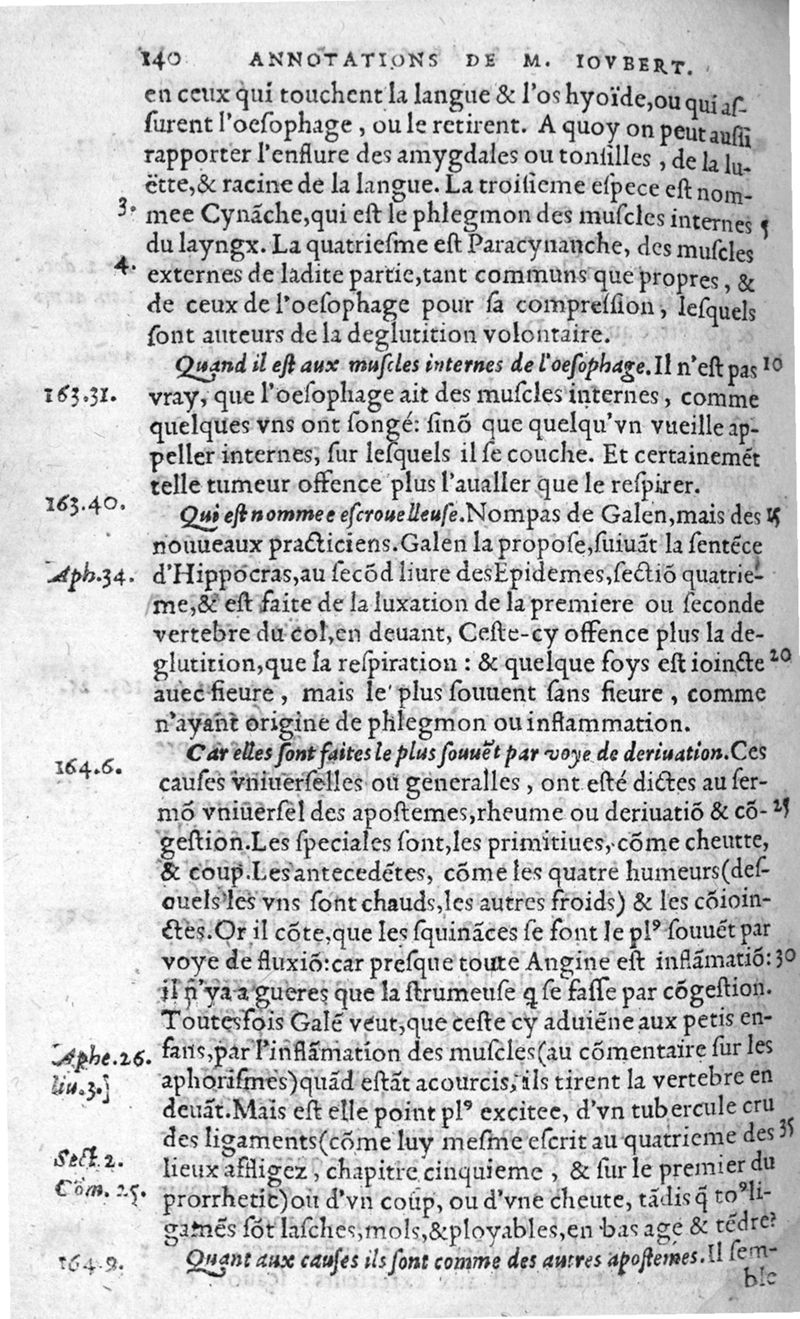 140 ANNOTATIONS DE M. IOVBERT.
en ceux qui touchent la langue & l'os hyoïde,ou qui aſ-
ſurent l'oeſophage , ou le retirent. A quoy on peut auſſi
rapporter l'enflure des amygdales ou tonſilles , de la lu-
ëtte,& racine de la langue. La troiſieme eſpece eſt nom-
3. mee Cynãche,qui eſt le phlegmon des muſcles internes 5
du layngx. La quatrieſme eſt Paracynanche, des muſcles
4. externes de ladite partie,tant communs que propres , &
de ceux de l'oeſophage pour ſa compreſſion , leſquels
ſont auteurs de la deglutition volontaire.
Quand il eſt aux muſcles internes de l'oeſophage.Il n'eſt pas 10
163.31. vray, que l'oeſophage ait des muſcles internes , comme
quelques vns ont ſongé: ſinõ que quelqu'vn vueille ap-
peller internes, ſur leſquels il ſe couche. Et certainemẽt
telle tumeur offence plus l'aualler que le reſpirer.
163.40. Qui eſt nommee eſcrouelleuſe.Nompas de Galen,mais des 15
nouueaux practiciens.Galen la propoſe,ſuiuãt la ſentẽce
Aph.34. d'Hippocras,au ſecõd liure desEpidemes,ſectiõ quatrie-
me,& eſt faite de la luxation de la premiere ou ſeconde
vertebre du col,en deuant, Ceſte-cy offence plus la de-
glutition,que la reſpiration : & quelque foys eſt ioincte 20
auec fieure , mais le plus ſouuent ſans fieure , comme
n'ayant origine de phlegmon ou inflammation.
164.6. Car elles ſont faites le plus ſouuẽt par voye de deriuation.Ces
cauſes vniuerſelles ou generalles , ont eſté dictes au ſer-
mõ vniuerſel des apoſtemes,rheume ou deriuatiõ & cõ- 25
geſtion.Les ſpeciales ſont,les primitiues, cõme cheutte,
& coup.Les antecedẽtes, cõme les quatre humeurs(deſ-
quels les vns ſont chauds,les autres froids) & les cõioin-
ctes.Or il cõte,que les ſquinãces ſe font le plꝰ ſouuẽt par
voye de fluxiõ:car preſque toute Angine eſt inflãmatiõ: 30
il n'y a gueres que la ſtrumeuſe q̃ ſe faſſe par cõgeſtion.
Toutesfois Galẽ veut,que ceſte cy aduiẽne aux petis en-
Aphe.26. fans,par l'inflãmation des muſcles(au cõmentaire ſur les
liu.3.] aphoriſmes)quãd eſtãt acourcis, ils tirent la vertebre en
deuãt.Mais eſt elle point plꝰ excitee, d'vn tubercule cru
des ligaments(cõme luy meſme eſcrit au quatrieme des 35
Sect.2. lieux affligez , chapitre cinquieme , & ſur le premier du
Com.25. prorrhetic)ou d'vn coup, ou d'vne cheute, tãdis q̃ toꝰ li-
gamẽs ſõt laſches,mols,&ployables,en bas age & tẽdre?
164.9. Quant aux cauſes ils ſont comme des autres apoſtemes.Il ſem-
ble